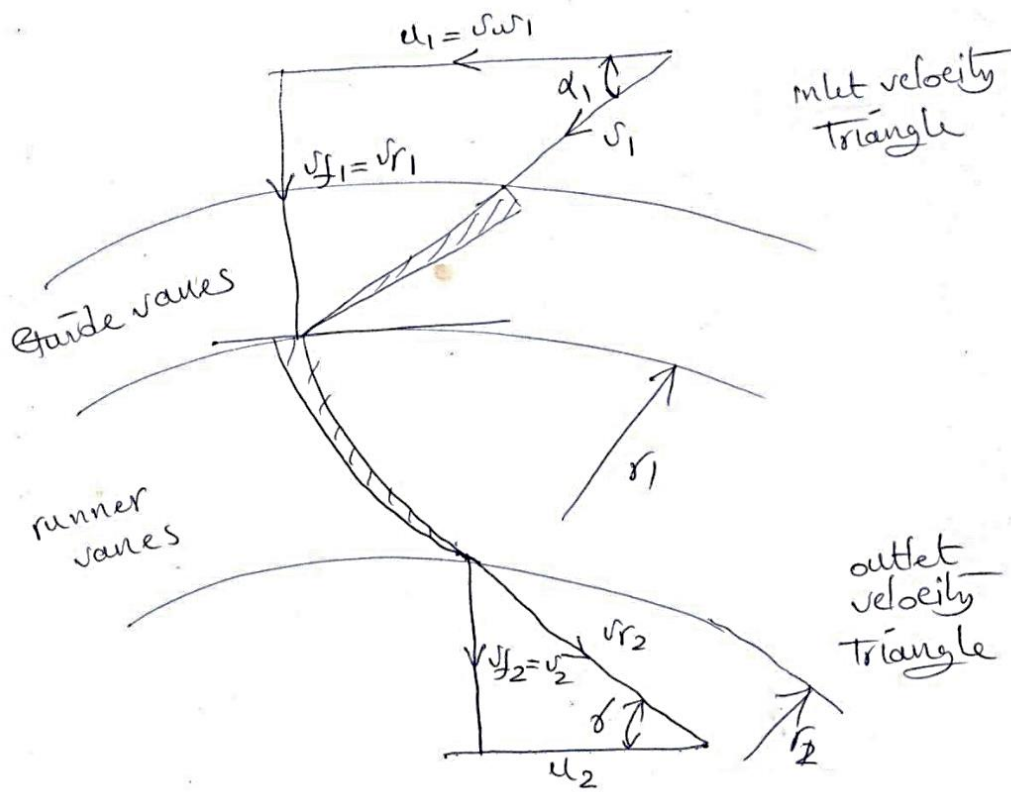 u₁ = vw₁
α₁
v₁
inlet velocity
Triangle
vf₁ = vr₁
Guide vanes
r₁
runner
vanes
outlet
velocity
Triangle
vr₂
vf₂ = v₂
γ
r₂
u₂